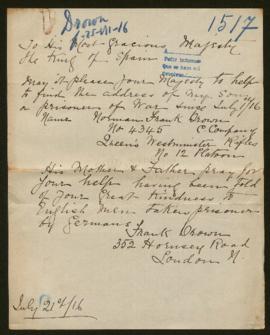 Drown
25-VII-16
1517
To His Most Gracious Majesty
The King of Spain
Pedir informes
May it please your Majesty to help
to find the address of my Son
a prisoner of War since July 1/16
Name Norman Frank Drown
No 4345 C Company
Queen's Westminster Rifles
No 12 Platoon
His Mother & Father pray for
your help having been told
of your Great Kindness to
English Men taken prisoner
by Germans
Frank Drown
352 Hornsey Road
London N.
July 21st/16